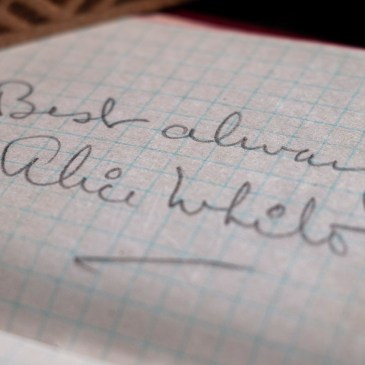 Best alway
Alice White